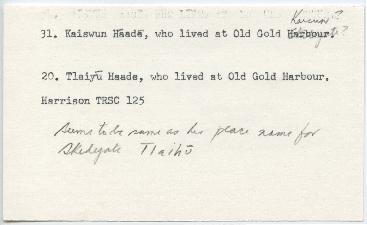 Kaisun?
31. Kaiswun Hāadē, who lived at Old Gold Harbour.
20. Tlaiyū Haade, who lived at Old Gold Harbour.
Harrison TRSC 125
Seems to be same as his place name for
Skidegate Tlaihū